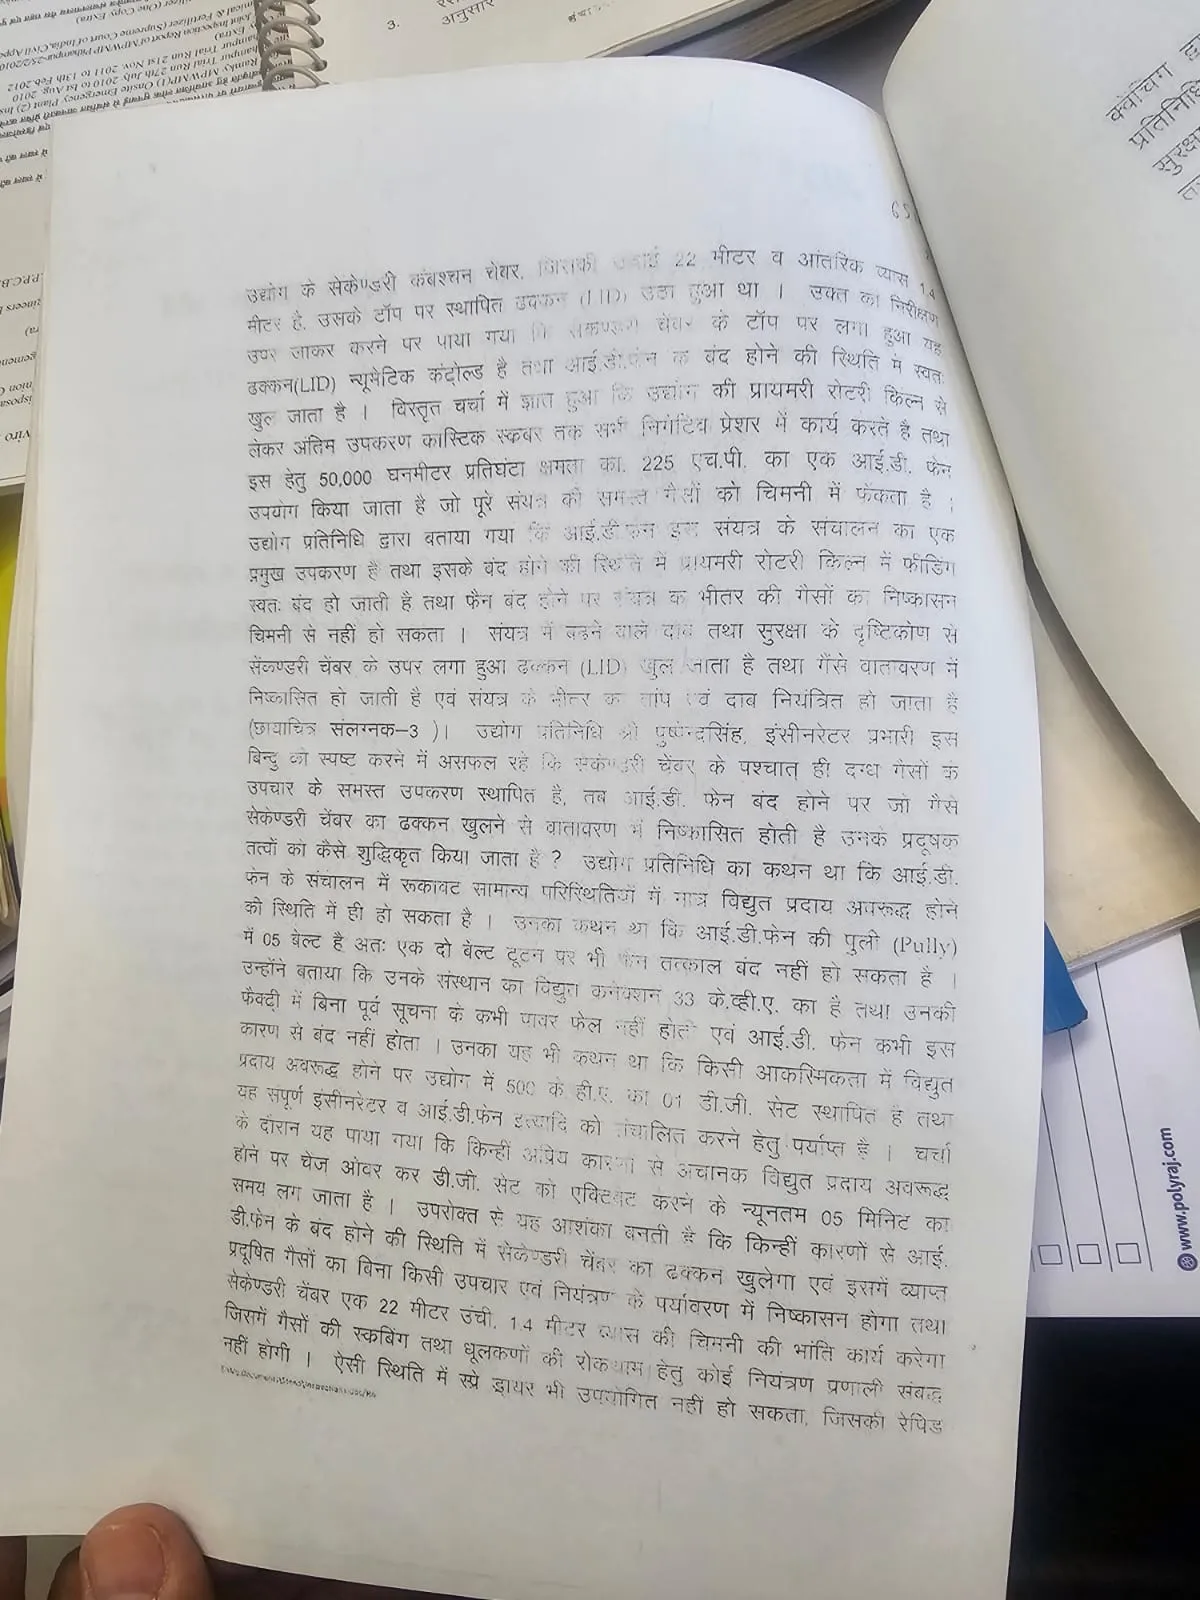 3.
अनुसार
65
उद्योग के सेकेण्डरी कंबश्चन चेंबर, जिसकी उंचाई 22 मीटर व आंतरिक व्यास 1.4
मीटर है, उसके टॉप पर स्थापित ढक्कन (LID) उठा हुआ था । उक्त का निरीक्षण
उपर जाकर करने पर पाया गया कि सेकेण्डरी चेंबर के टॉप पर लगा हुआ यह
ढक्कन(LID) न्यूमेटिक कंट्रोल्ड है तथा आई.डी.फेन के बंद होने की स्थिति में स्वतः
खुल जाता है । विस्तृत चर्चा में ज्ञात हुआ कि उद्योग की प्रायमरी रोटरी किल्न से
लेकर अंतिम उपकरण कास्टिक स्कबर तक सभी निगेटिव प्रेशर में कार्य करते है तथा
इस हेतु 50,000 घनमीटर प्रतिघंटा क्षमता का, 225 एच.पी. का एक आई.डी. फेन
उपयोग किया जाता है जो पूरे संयत्र की समस्त गैसों को चिमनी में फेंकता है ।
उद्योग प्रतिनिधि द्वारा बताया गया कि आई.डी.फेन इस संयत्र के संचालन का एक
प्रमुख उपकरण है तथा इसके बंद होने की स्थिति में प्रायमरी रोटरी किल्न में फीडिंग
स्वतः बंद हो जाती है तथा फैन बंद होने पर संयत्र के भीतर की गैसों का निष्कासन
चिमनी से नहीं हो सकता । संयत्र में बढने वाले दाब तथा सुरक्षा के दृष्टिकोण से
सेंकण्डरी चेंबर के उपर लगा हुआ ढक्कन (LID) खुल जाता है तथा गैसे वातावरण में
निष्कासित हो जाती है एवं संयत्र के भीतर का ताप एवं दाब नियंत्रित हो जाता है
(छायाचित्र संलग्नक–3 )। उद्योग प्रतिनिधि श्री पुष्पेन्द्रसिंह, इंसीनरेटर प्रभारी इस
बिन्दु को स्पष्ट करने में असफल रहे कि सेकेण्डरी चेंबर के पश्चात् ही दग्ध गैसों के
उपचार के समस्त उपकरण स्थापित है, तब आई.डी. फेन बंद होने पर जो गैसे
सेकेण्डरी चेंबर का ढक्कन खुलने से वातावरण में निष्कासित होती है उनके प्रदूषक
तत्वों को कैसे शुद्धिकृत किया जाता है ? उद्योग प्रतिनिधि का कथन था कि आई.डी.
फेन के संचालन में रूकावट सामान्य परिस्थितियों में मात्र विद्युत प्रदाय अवरूद्ध होने
की स्थिति में ही हो सकता है । उनका कथन था कि आई.डी.फेन की पुली (Pully)
में 05 बेल्ट है अतः एक दो बेल्ट टूटन पर भी फेन तत्काल बंद नहीं हो सकता है ।
उन्होंने बताया कि उनके संस्थान का विद्युत कनेक्शन 33 के.व्ही.ए. का है तथा उनकी
फैक्ट्री में बिना पूर्व सूचना के कभी पावर फेल नहीं होती एवं आई.डी. फेन कभी इस
कारण से बंद नहीं होता । उनका यह भी कथन था कि किसी आकस्मिकता में विद्युत
प्रदाय अवरूद्ध होने पर उद्योग में 500 के.व्ही.ए. का 01 डी.जी. सेट स्थापित है तथा
यह संपूर्ण इंसीनरेटर व आई.डी.फेन इत्यादि को संचालित करने हेतु पर्याप्त है । चर्चा
के दौरान यह पाया गया कि किन्हीं अप्रिय कारणों से अचानक विद्युत प्रदाय अवरूद्ध
होने पर चेंज ओवर कर डी.जी. सेट को एक्टिवेट करने के न्यूनतम 05 मिनिट का
समय लग जाता है । उपरोक्त से यह आशंका बनती है कि किन्हीं कारणों से आई.
डी.फेन के बंद होने की स्थिति में सेकेण्डरी चेंबर का ढक्कन खुलेगा एवं इसमें व्याप्त
प्रदूषित गैसों का बिना किसी उपचार एवं नियंत्रण के पर्यावरण में निष्कासन होगा तथा
सेकेण्डरी चेंबर एक 22 मीटर उंची, 1.4 मीटर व्यास की चिमनी की भांति कार्य करेगा
जिसमें गैसों की स्कबिंग तथा धूलकणों की रोकथाम हेतु कोई नियंत्रण प्रणाली संबद्ध
नहीं होगी । ऐसी स्थिति में स्प्रे ड्रायर भी उपयोगित नहीं हो सकता, जिसकी रेपिड
क्वेंचिंग
प्रतिनिधि
www.polyraj.com